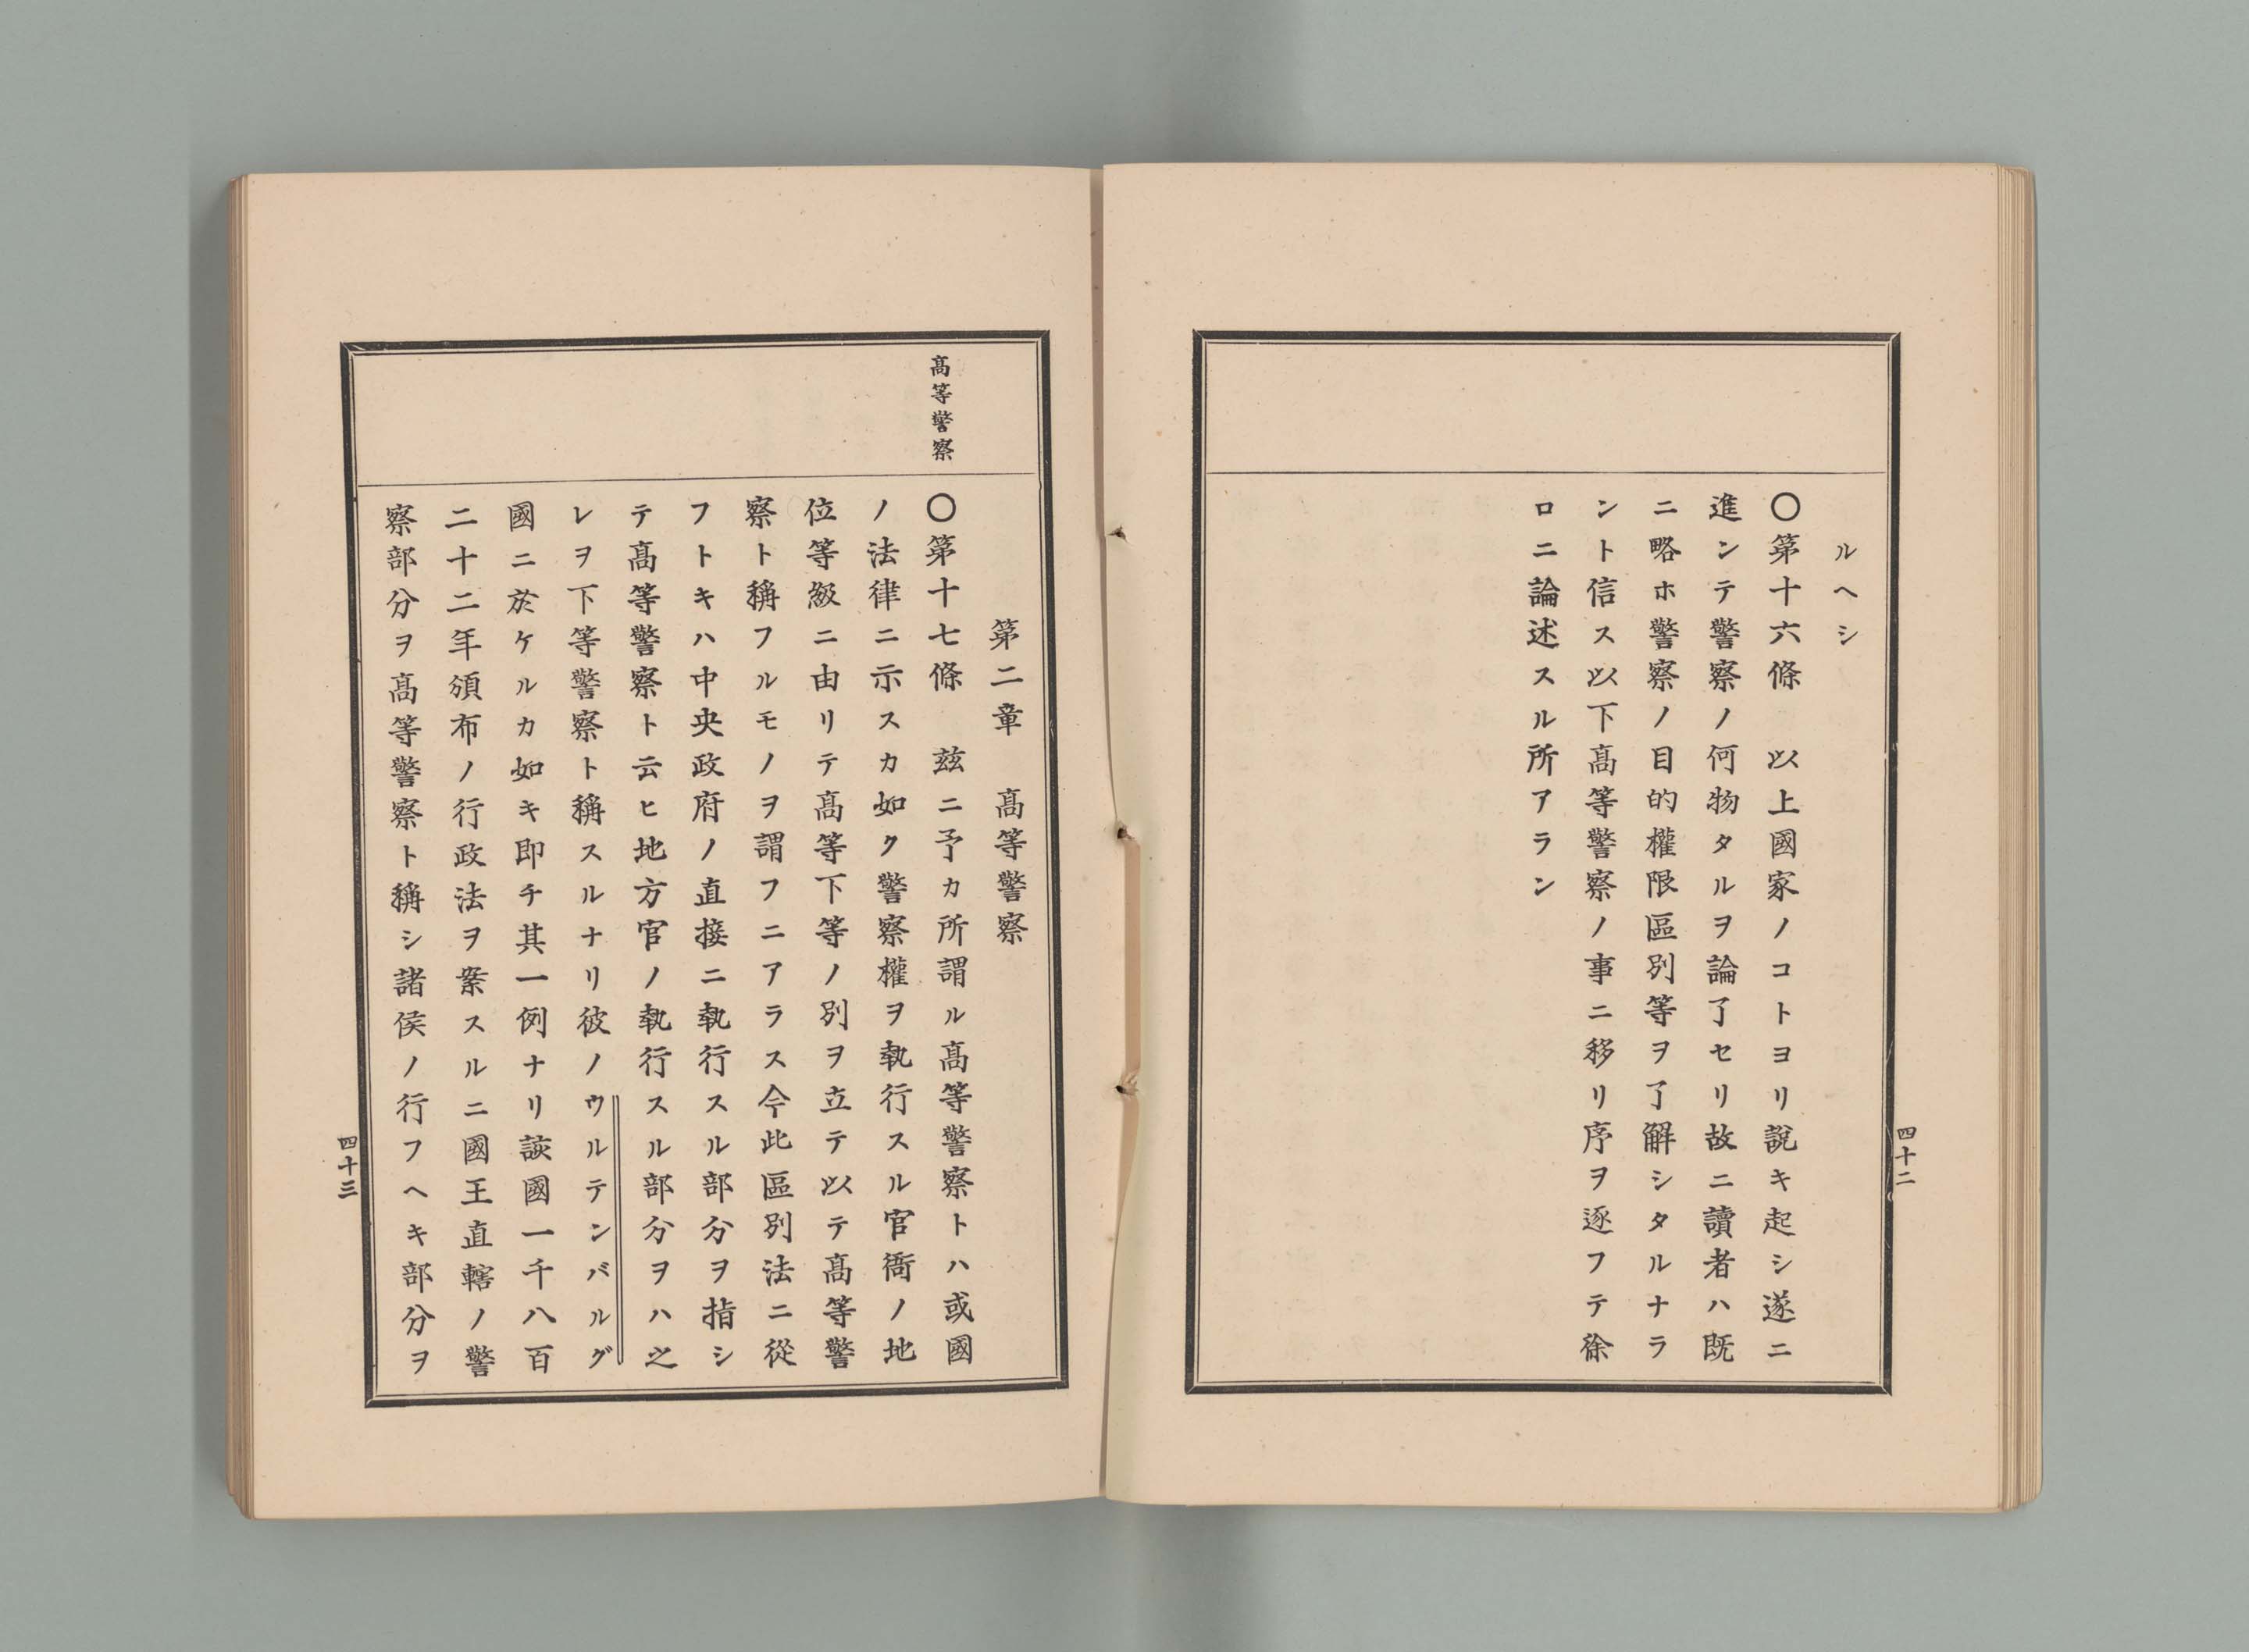 ルヘシ
〇第十六條　以上國家ノコトヨリ說キ起シ遂ニ
進ンテ警察ノ何物タルヲ論了セリ故ニ讀者ハ既
ニ略ホ警察ノ目的權限區別等ヲ了解シタルナラ
ント信ス以下髙等警察ノ事ニ移リ序ヲ逐フテ徐
ロニ論述スル所アラン
四十二
第二章　髙等警察
髙等警察
〇第十七條　玆ニ予カ所謂ル髙等警察トハ或國
ノ法律ニ示スカ如ク警察權ヲ執行スル官衙ノ地
位等級ニ由リテ髙等下等ノ別ヲ立テ以テ髙等警
察ト稱フルモノヲ謂フニアラス今此區別法ニ從
フトキハ中央政府ノ直接ニ執行スル部分ヲ指シ
テ髙等警察ト云ヒ地方官ノ執行スル部分ヲハ之
レヲ下等警察ト稱スルナリ彼ノウルテンバルグ
國ニ於ケルカ如キ即チ其一例ナリ該國一千八百
二十二年頒布ノ行政法ヲ案スルニ國王直轄ノ警
察部分ヲ髙等警察ト稱シ諸侯ノ行フヘキ部分ヲ
四十三